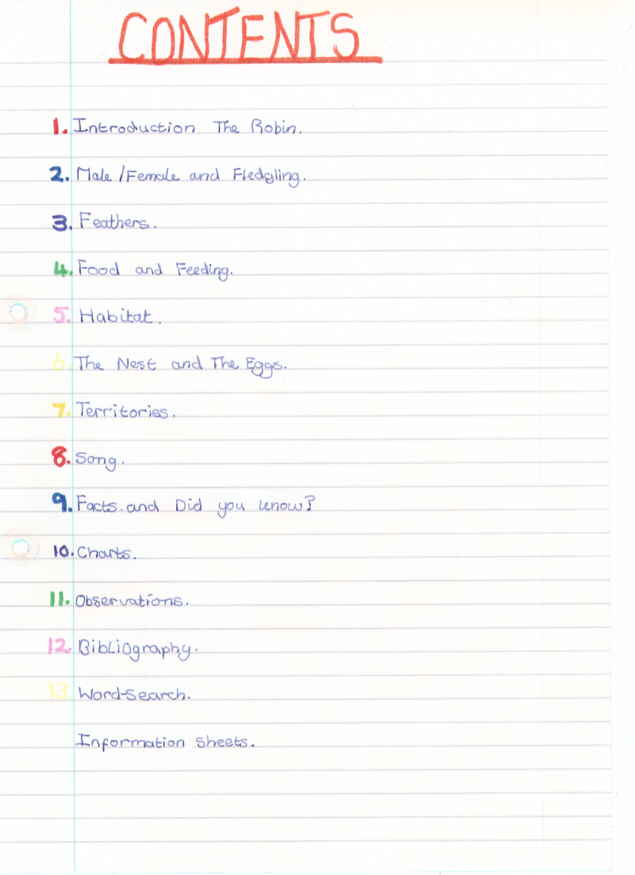 CONTENTS
1. Introduction The Robin.
2. Male/Female and Fledgling.
3. Feathers.
4. Food and Feeding.
5. Habitat.
6 The Nest and The Eggs.
7. Territories.
8. Song.
9. Facts and Did you know?
10. Charts.
11. Observations.
12. Bibliography.
13 Word-Search.
Information Sheets.